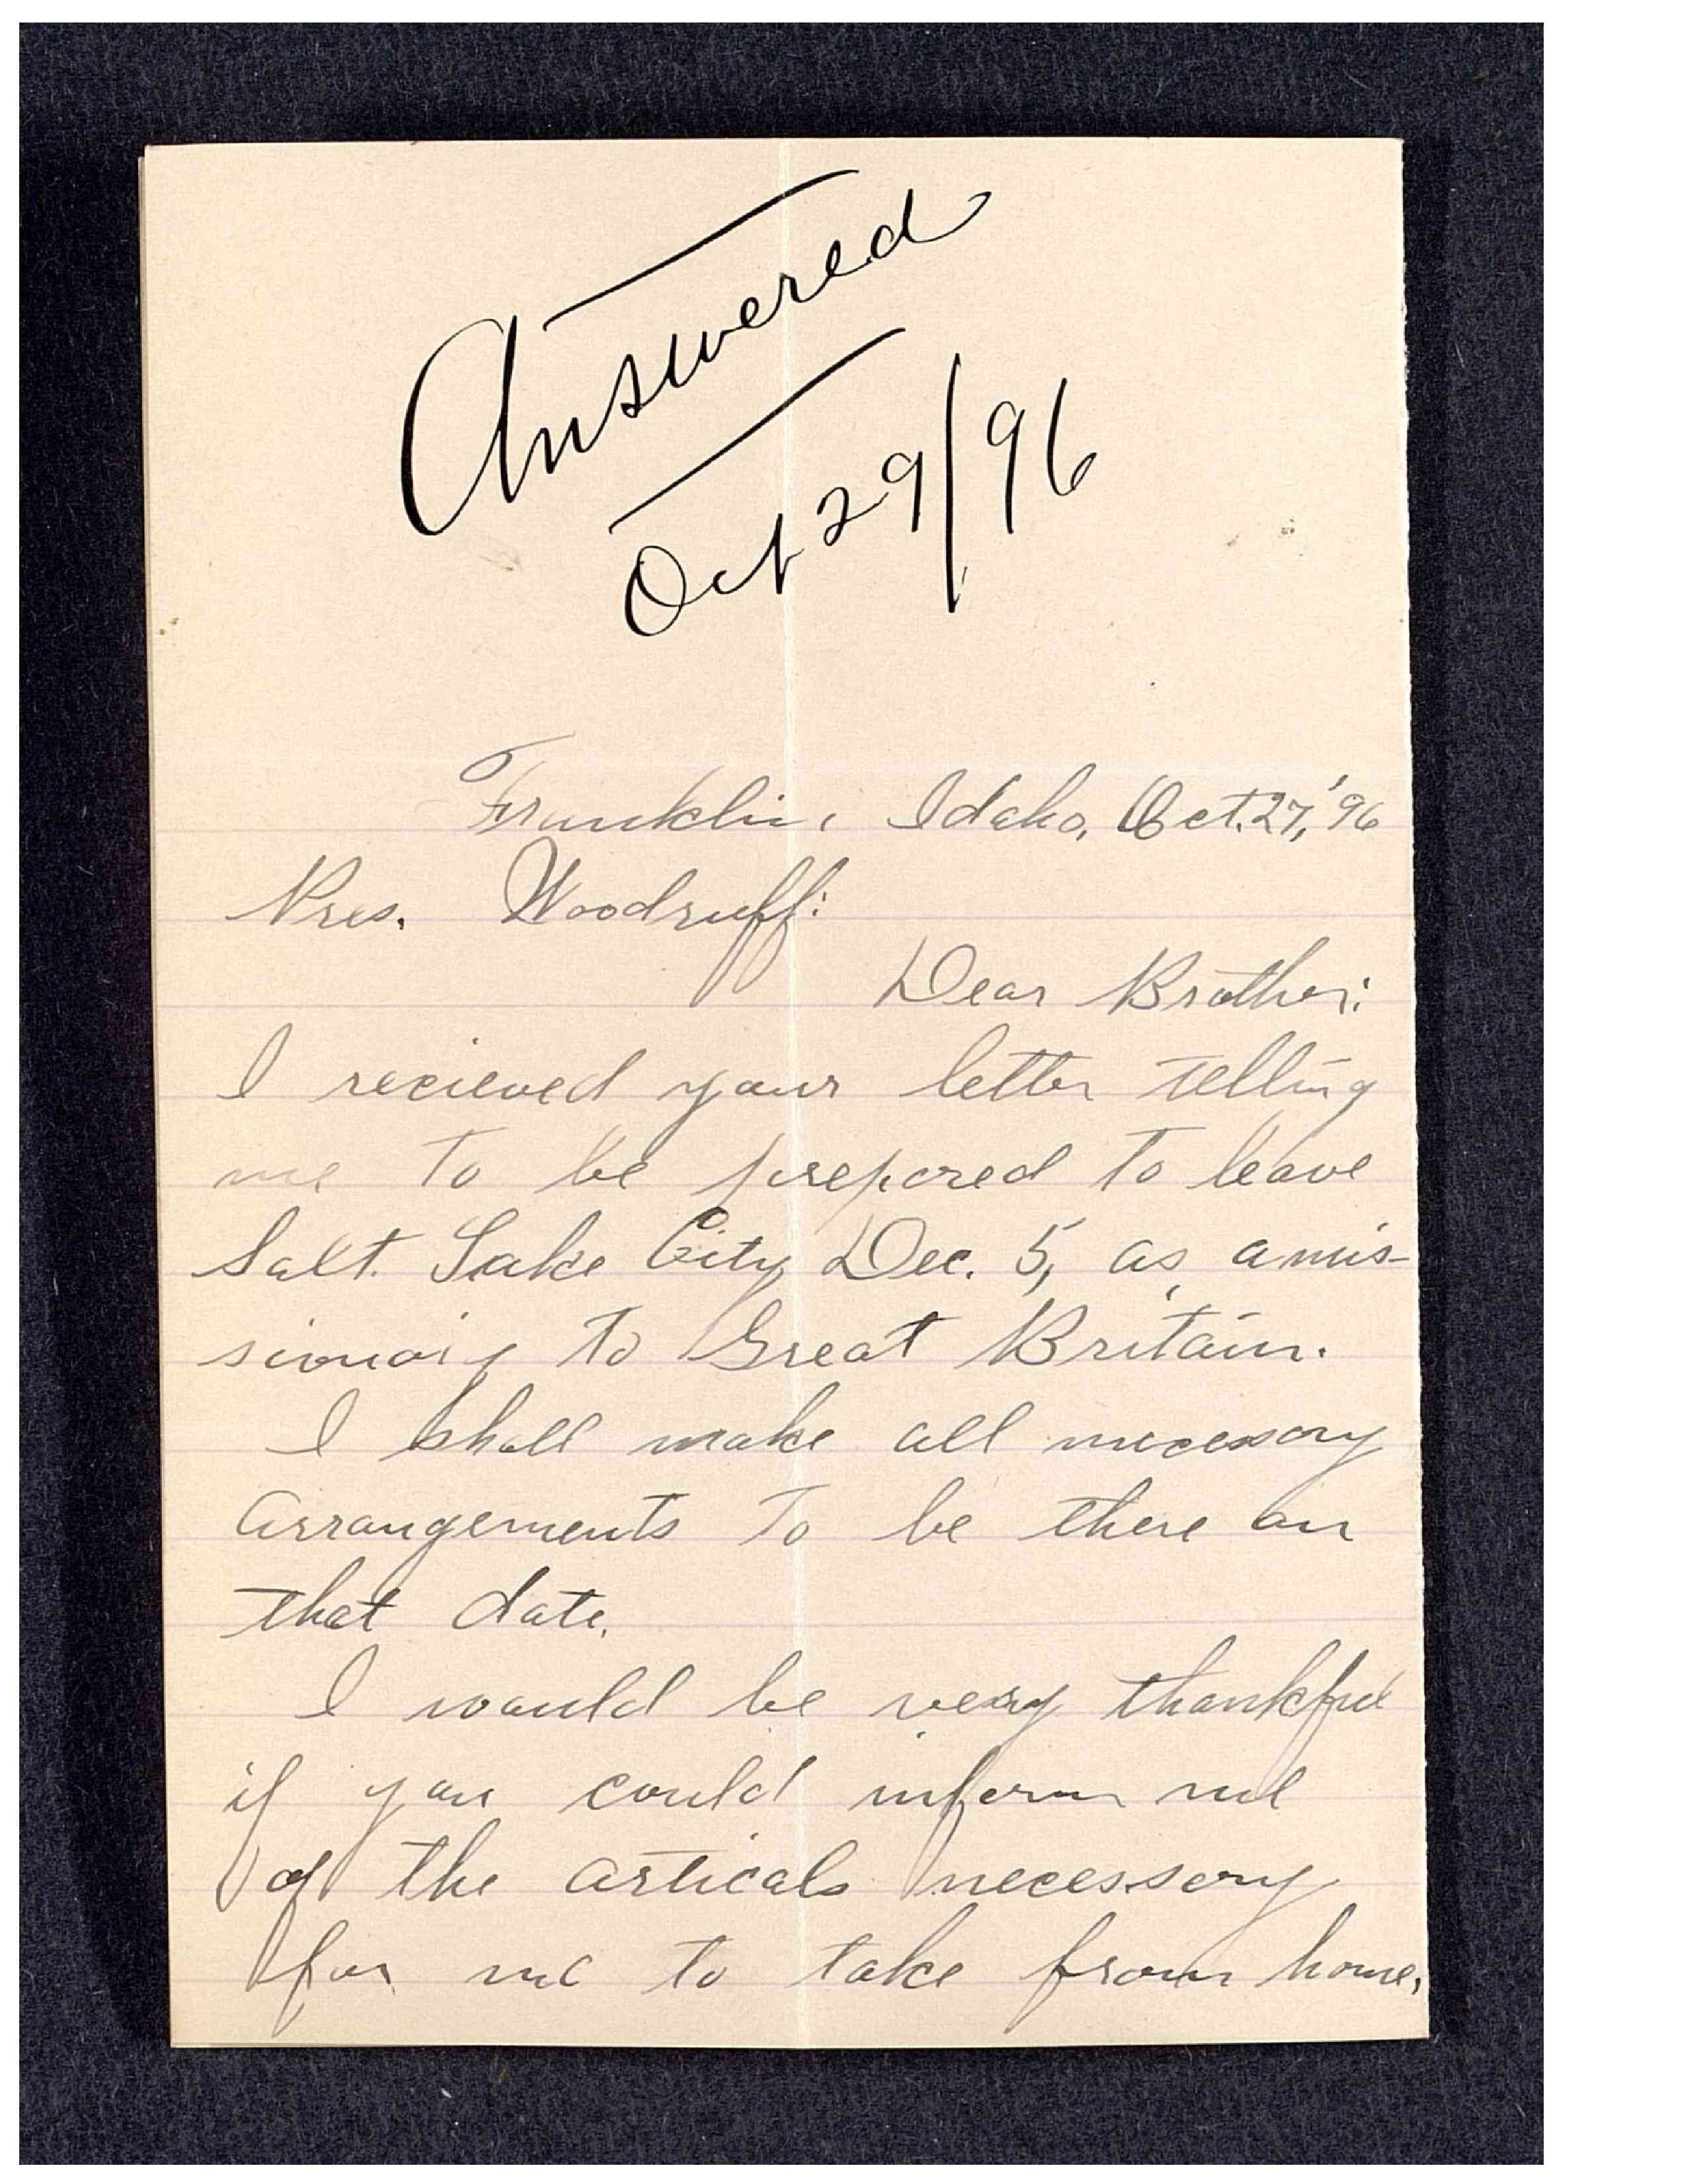 Answered
Oct 29/96
Franklin, Idaho, Oct. 27, '96
Pres. Woodruff:
Dear Brother:
I recieved your letter telling
me to be prepared to leave
Salt Lake City Dec. 5, as a mis-
sionary to Great Britain.
I shall make all necessary
arrangements to be there on
that date.
I would be very thankful
if you could inform me
of the articals necessary
for me to take from home,